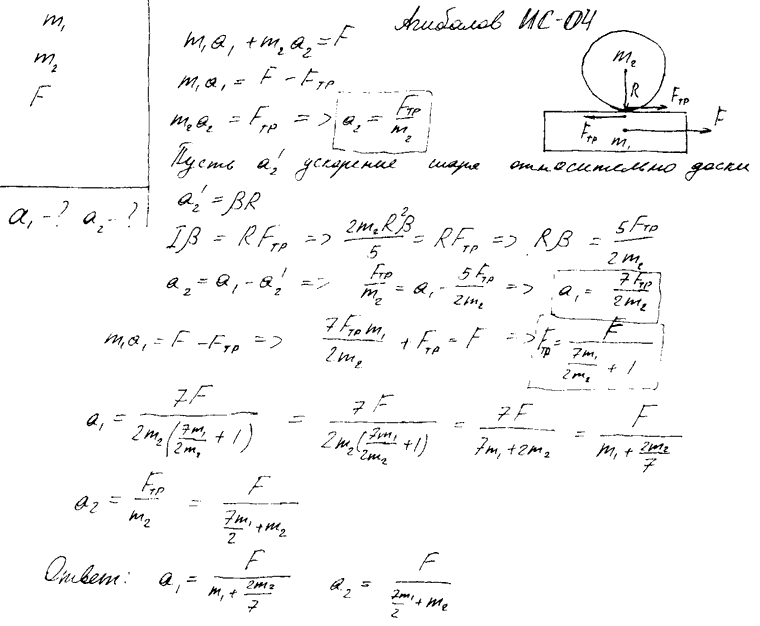 Агибалов ИС-04
m₁
m₂
F
a₁-? a₂-?
m₁a₁ + m₂a₂ = F
m₁a₁ = F - Fтр
m₂a₂ = Fтр => a₂ = Fтр/m₂
m₂
R
Fтр
F
Fтр
m₁
Пусть a₂' ускорение шара относительно доски
a₂' = βR
Iβ = RFтр => 2m₂R²β/5 = RFтр => Rβ = 5Fтр/2m₂
a₂ = a₁ - a₂' => Fтр/m₂ = a₁ - 5Fтр/2m₂ => a₁ = 7Fтр/2m₂
m₁a₁ = F - Fтр => 7Fтр m₁/2m₂ + Fтр = F => Fтр = F/(7m₁/2m₂ + 1)
a₁ = 7F/(2m₂(7m₁/2m₂ + 1)) = 7F/(2m₂(7m₁/2m₂ + 1)) = 7F/(7m₁ + 2m₂) = F/(m₁ + 2m₂/7)
a₂ = Fтр/m₂ = F/(7m₁/2 + m₂)
Ответ: a₁ = F/(m₁ + 2m₂/7) a₂ = F/(7m₁/2 + m₂)